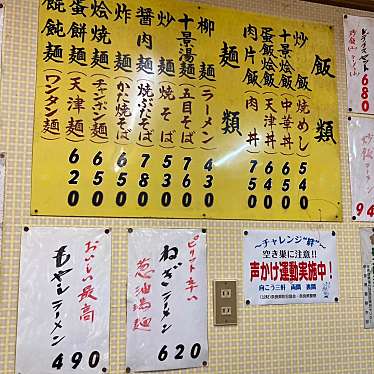 飯類
炒飯（焼めし）540
十景燴飯（中華丼）650
蛋飯燴飯（天津丼）650
肉片飯（肉丼）750
麺類
柳麺（ラーメン）430
十景湯麺（五目そば）760
炒麺（焼そば）560
醤肉麺（焼ぶたそば）780
炸麺（かた焼そば）655
燴焼麺（チャンポン麺）655
蛋燴麺（天津麺）620
餛飩麺（ワンタン麺）620
680
94
ピリット辛い
ねぎラーメン
葱油湯麺
620
おいしい最高
もやしラーメン
490
〜チャレンジ“絆”〜
空き巣に注意!!
声かけ運動実施中！
向こう三軒 両隣 裏隣